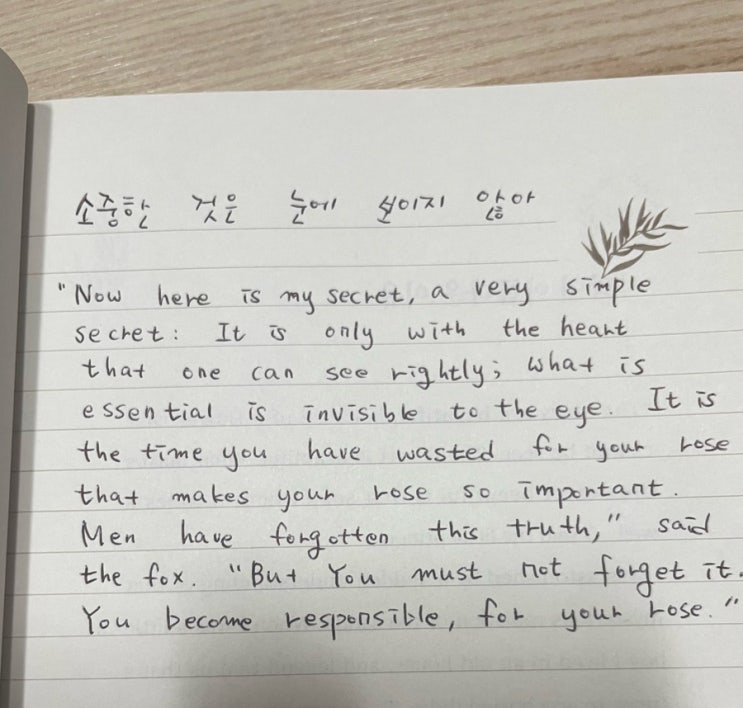 소중한 것은 눈에 보이지 않아
"Now here is my secret, a very simple
secret: It is only with the heart
that one can see rightly; what is
essential is invisible to the eye. It is
the time you have wasted for your rose
that makes your rose so important.
Men have forgotten this truth," said
the fox. "But You must not forget it.
You become responsible, for your rose."